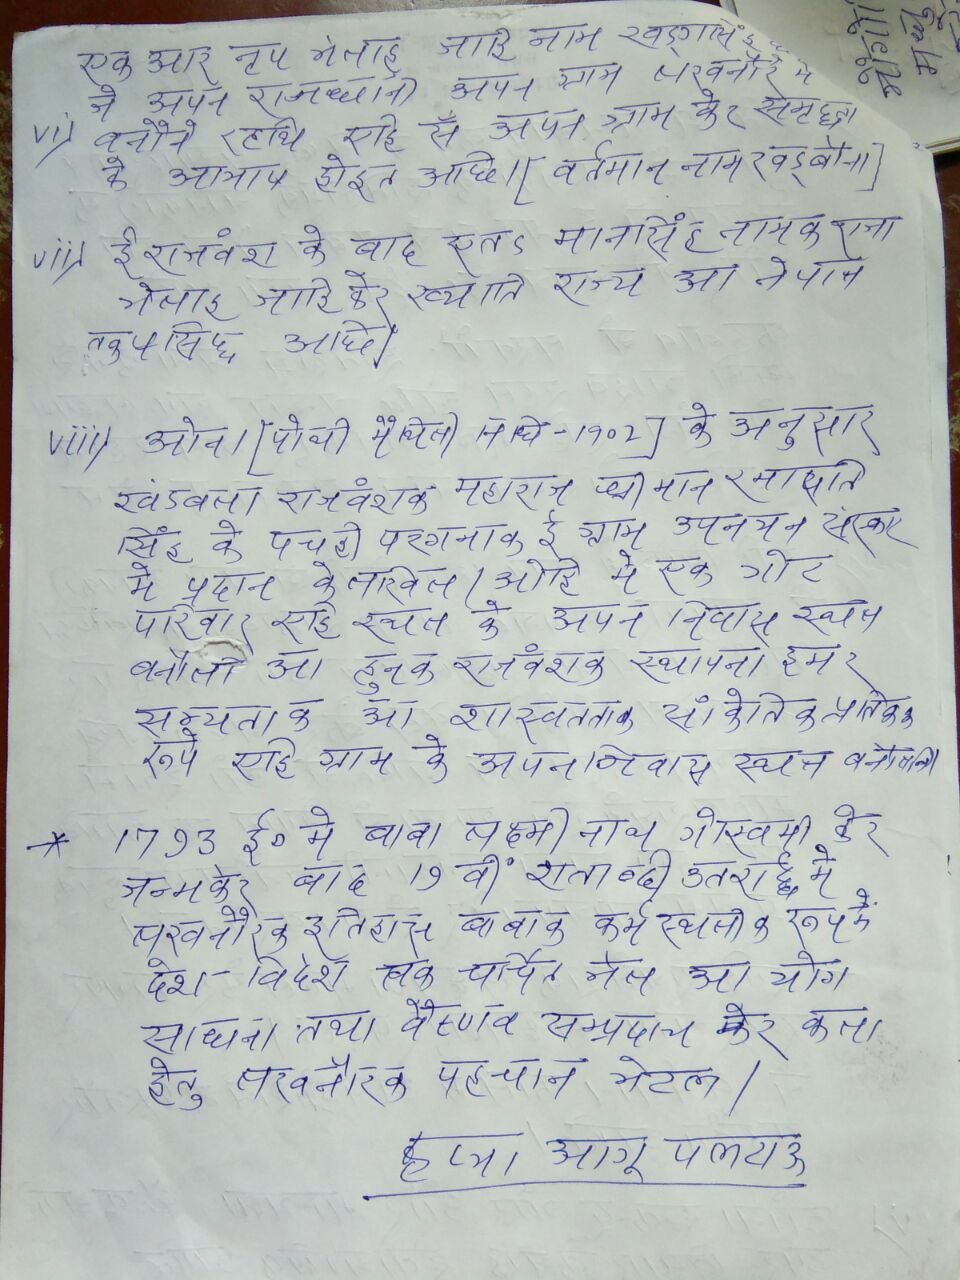 एक आर नृप भेलाह जाहि नाम खड्गसिंह
जे अपन राजधानी अपन ग्राम लखनौर मे
vi) बनौने रहथि एहि सँ अपन ग्राम केर समृद्धता
के आभाष होइत अछि। [वर्तमान नाम खड़्बौना]
vii) ई राजवंश के बाद एतs मानसिंह नामक राजा
भेलाह जाहि केर ख्याति राज्य आ नेपाल
तक प्रसिद्ध अछि।
viii) ओना [पोथी मैथिली निधि - 1902] के अनुसार
खंडवला राजवंशक महाराज श्रीमान रमापति
सिंह के पचही परगनाक ई ग्राम उपनयन संस्कार
मे प्रदान केलखिन। ओहि मे एक गोट
परिवार एहि स्थल के अपन निवास स्थल
बनौली आ हुनक राजवंशक स्थापना हमर
सभ्यताक आ शास्वतताक सांकेतिक प्रतिकक
रूपे एहि ग्राम के अपन निवास स्थल बनौलनि
* 1793 ई० मे बाबा लक्ष्मी नाथ गोस्वामी केर
जन्म केर बाद 19 वीं शताब्दी उतरार्द्ध मे
लखनौरक इतिहास बाबाक कर्मस्थलीक रूपमें
देश-विदेश तक चर्चित भेल आ योग
साधना तथा वैष्णव सम्प्रदाय केर कला
हेतु लखनौरक पहचान भेटल।
कृप्या आगू पलटाऊ